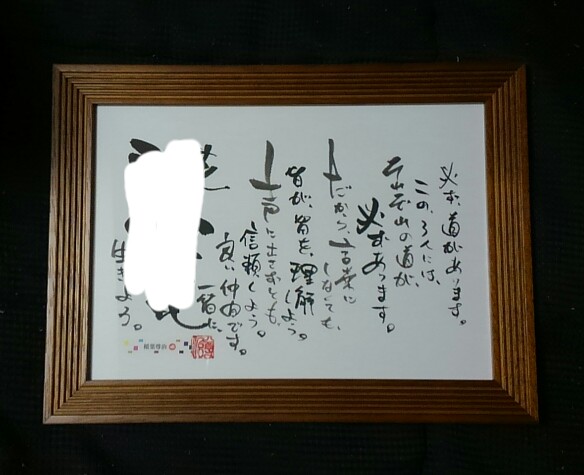 必ず、道があります。
この、3人には、
それぞれの道が、
必ずあります。
だから、言葉に
しなくても、
皆が、皆を、理解
しよう。
声に出さずとも、
信頼しよう。
良い仲間です。
一緒に、
生きよう。